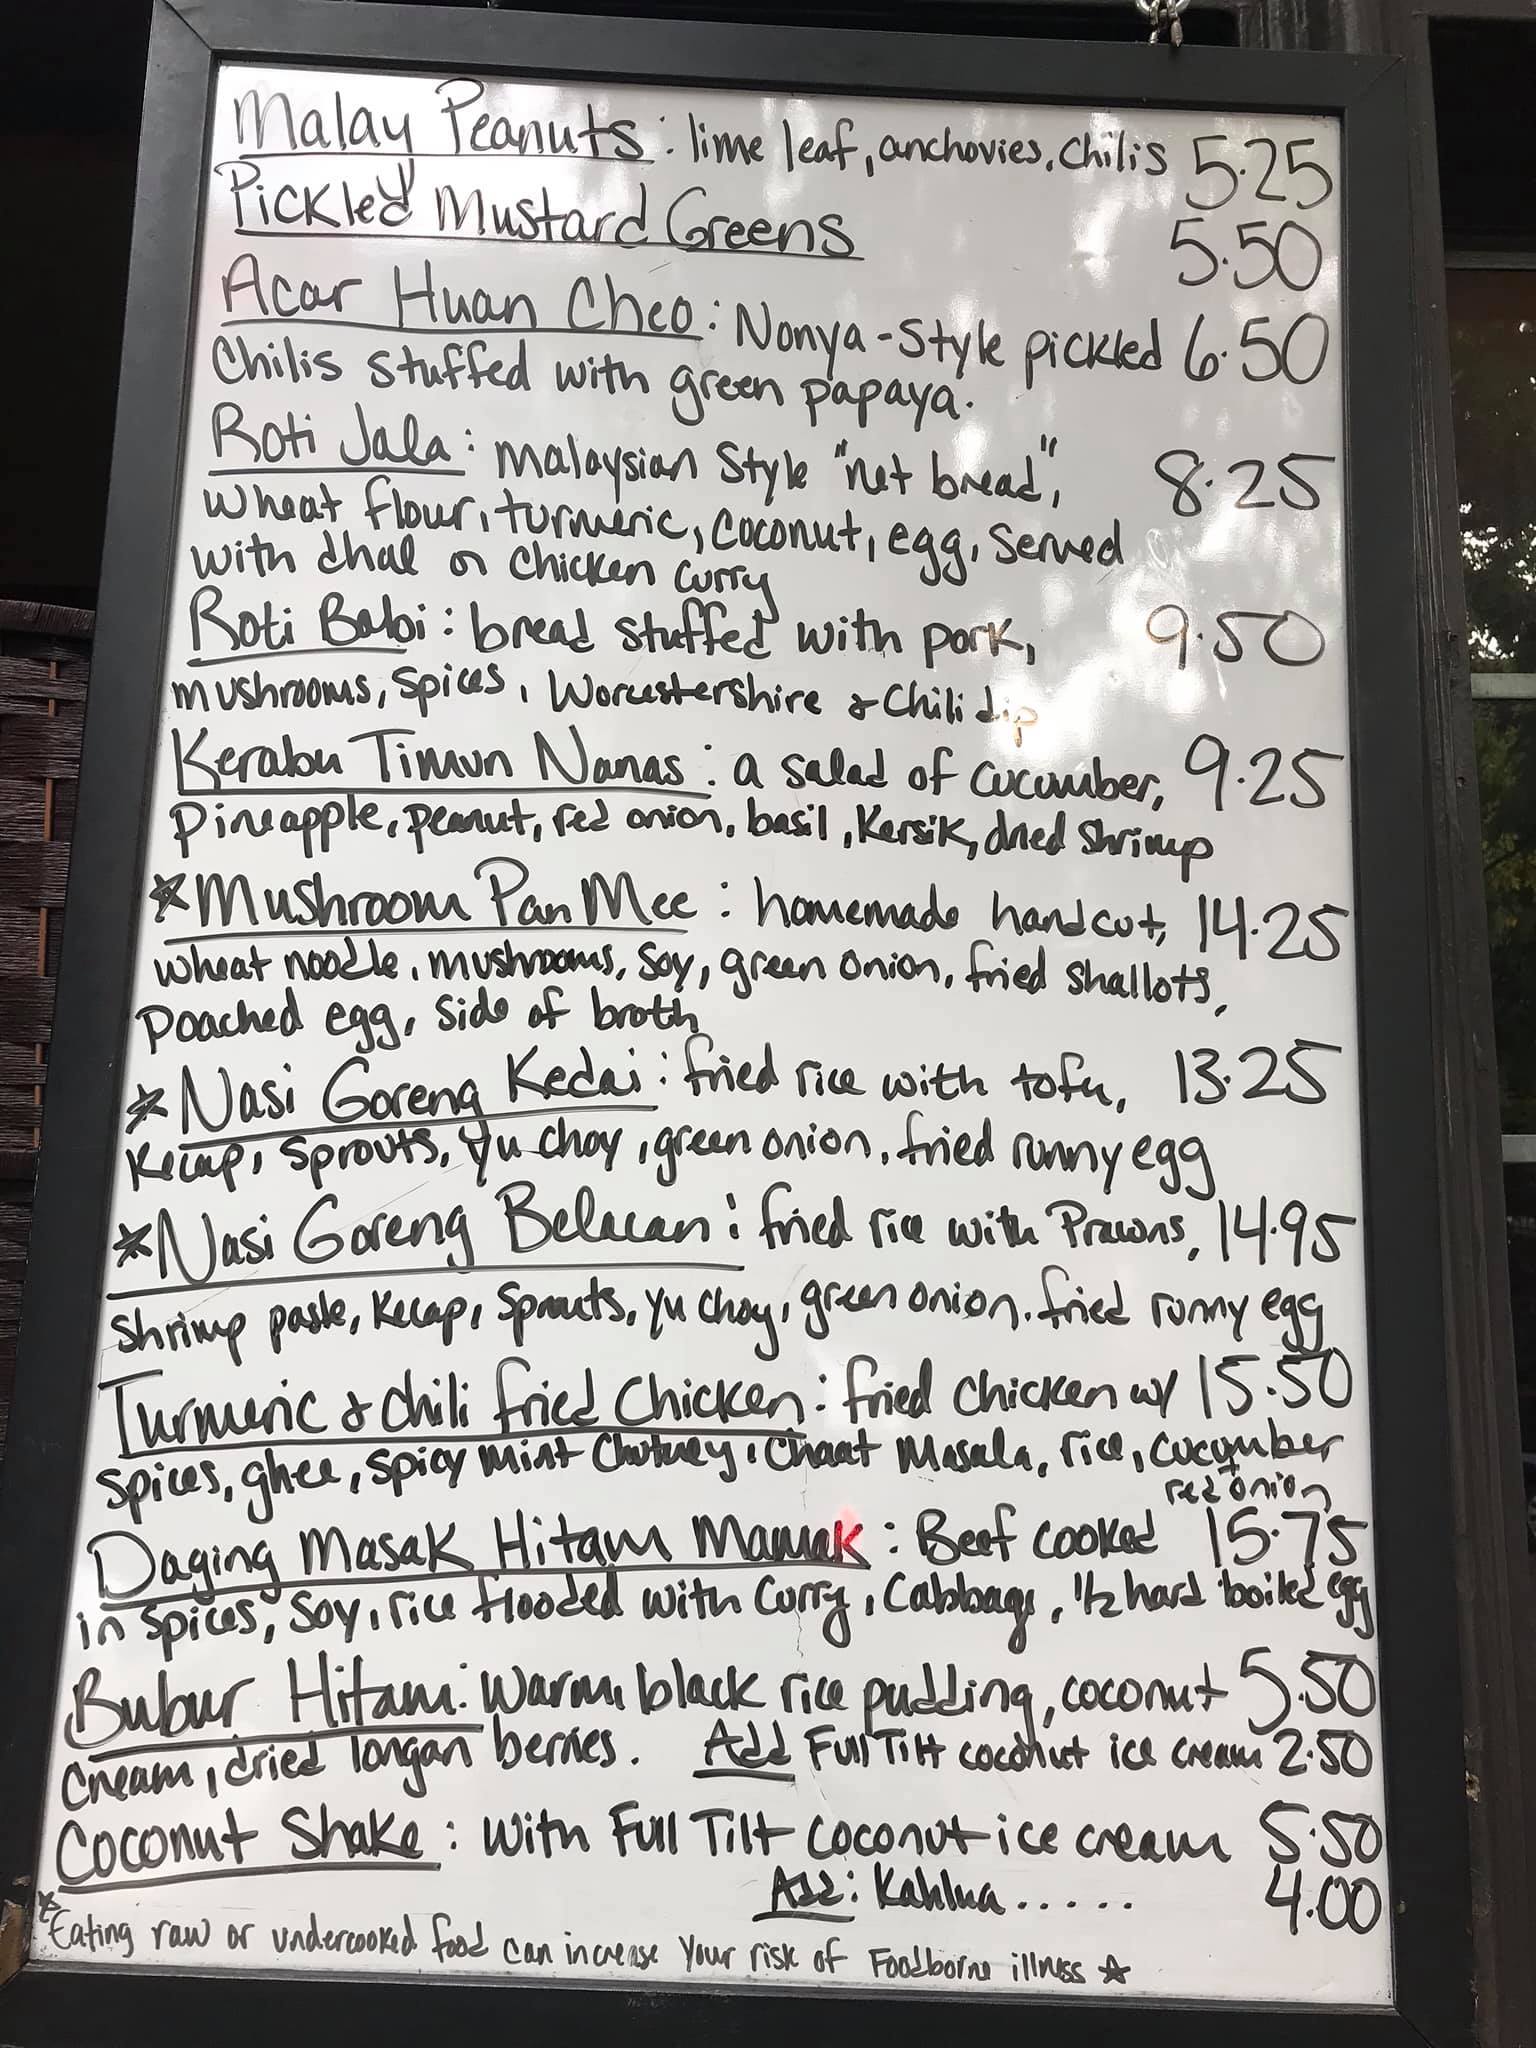 Malay Peanuts: lime leaf, anchovies, chilis 5.25
Pickled Mustard Greens 5.50
Acar Huan Cheo: Nonya-Style pickled 6.50
Chilis stuffed with green papaya.
Roti Jala: Malaysian Style "net bread", 8.25
wheat flour, turmeric, coconut, egg, served
with dhal or chicken curry
Roti Babi: bread stuffed with pork, 9.50
mushrooms, spices, Worcestershire & Chili dip
Kerabu Timun Nanas: a salad of cucumber, 9.25
pineapple, peanut, red onion, basil, Kersik, dried shrimp
*Mushroom Pan Mee: homemade handcut, 14.25
wheat noodle, mushrooms, soy, green onion, fried shallots,
poached egg, side of broth
*Nasi Goreng Kedai: fried rice with tofu, 13.25
Kecap, sprouts, yu choy, green onion, fried runny egg
*Nasi Goreng Belacan: fried rice with Prawns, 14.95
shrimp paste, kecap, sprouts, yu choy, green onion, fried runny egg
Turmeric & chili fried Chicken: fried chicken w/ 15.50
spices, ghee, spicy mint Chutney, Chaat Masala, rice, cucumber
+ red onion
Daging Masak Hitam Mamak: Beef cooked 15.75
in spices, soy, rice flooded with curry, Cabbage, 1/2 hard boiled egg
Bubur Hitam: warm, black rice pudding, coconut 5.50
cream, dried longan berries. Add Full Tilt coconut ice cream 2.50
Coconut Shake: with Full Tilt coconut ice cream 5.50
Add: Kahlua..... 4.00
*Eating raw or undercooked food can increase your risk of Foodborne illness *